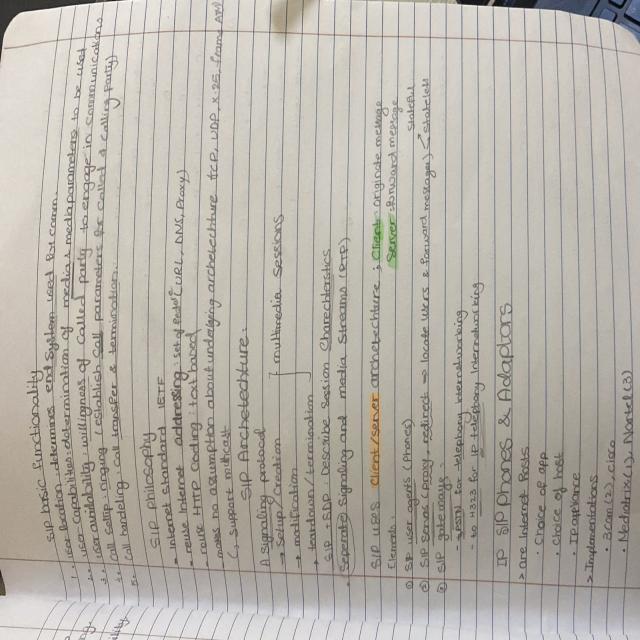 SIP basic functionality
1. user location: determines end system used for comm.
2. user capabilities: determination of media & media parameters to be used
3. user availability: willingness of called party to engage in communications
4. Call setup: ringing, establish call parameters for called & calling party)
5. Call handeling: call transfer & termination.
SIP Philosophy
Internet standard IETF
reuse Internet addressing: set of (URL, DNS, Proxy)
reuse HTTP coding: text based
makes no assumption about underlying archetechture TCP, UDP X.25, frame,
support multicast
SIP Archetechture.
A signaling protocol
→ Setup/creation
→ modification
→ teardown/termination
multimedia sessions
SIP: SDP: Describe Session Charecteristics
Separates Signaling and media Streams (RTP)
SIP uses client/server archetechture; client originate message
Server forward message
Elements
① SIP user agents (Phones)
② SIP Servers (Proxy, redirect ⇒ locate users & forward messages)
stateful
stateless
③ SIP gateways:
- PSTN for telephony internetworking
- to H.323 for IP telephony internetworking
IP SIP Phones & Adaptors
> are Internet hosts
• Choice of app
• Choice of host
• IP appliance
> Implementations
• 3Com (2), Cisco
• Mediatrix (1), Nortel (3)